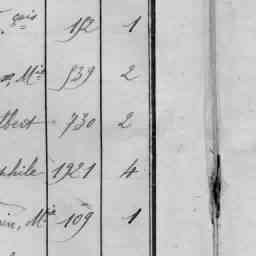 çois 152 1
Mie 539 2
lbert 730 2
phile 1921 4
in, Mie 109 1